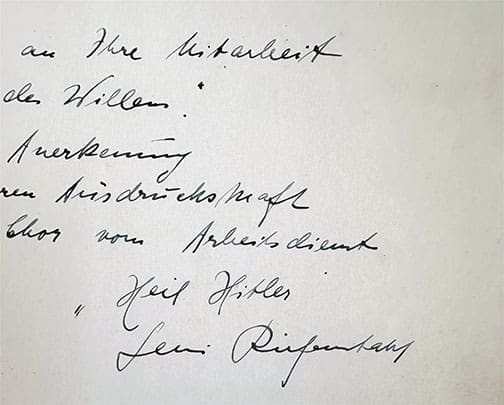 an Ihre Mitarbeit
des Willens."
Anerkennung
ren Ausdruckskraft
Chor vom Arbeitsdienst
" Heil Hitler
Leni Riefenstahl